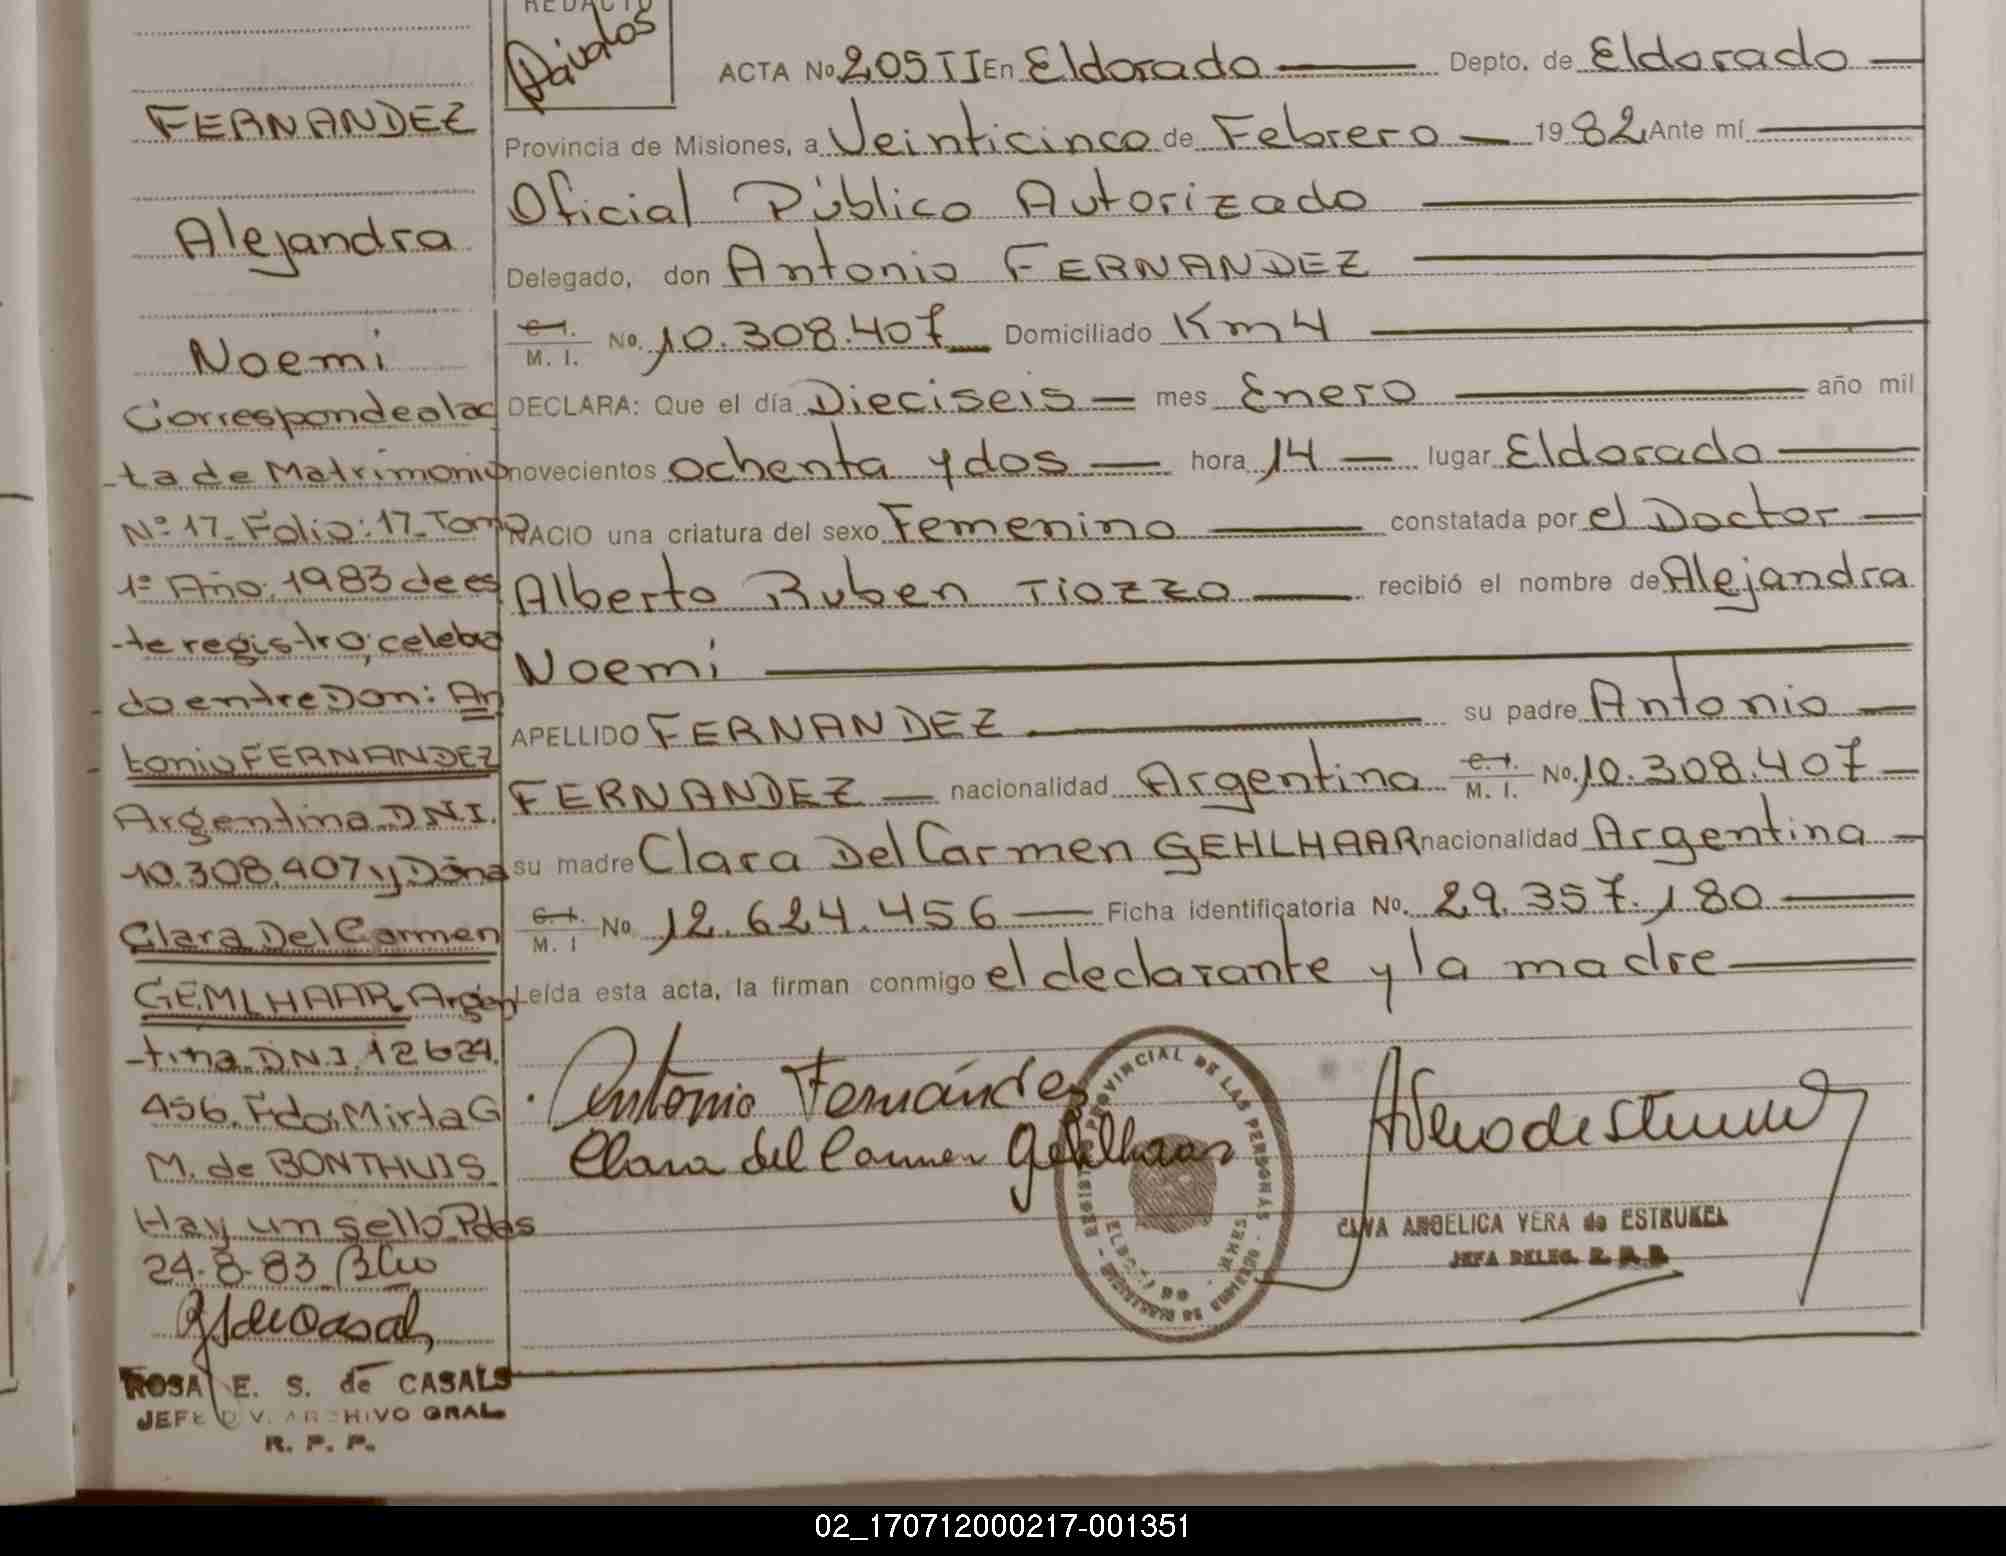 REDACTO
Dávalos
ACTA No 205 II En Eldorado Depto. de Eldorado
Provincia de Misiones, a Veinticinco de Febrero 1982 Ante mí
Oficial Público Autorizado
Delegado, don Antonio FERNANDEZ
C.I. M. I. No. 10.308.407 Domiciliado Km 4
DECLARA: Que el día Dieciseis mes Enero año mil
novecientos ochenta y dos hora 14 lugar Eldorado
NACIO una criatura del sexo Femenino constatada por el Doctor
Alberto Ruben TIOZZO recibió el nombre de Alejandra
Noemi
APELLIDO FERNANDEZ su padre Antonio
FERNANDEZ nacionalidad Argentina C.I. M. I. No. 10.308.407
su madre Clara Del Carmen GEHLHAAR nacionalidad Argentina
C.I. M. I No 12.624.456 Ficha identificatoria No. 29.357.180
Leída esta acta, la firman conmigo el declarante y la madre
Antonio Fernández
Clara del Carmen Gehlhaar
REGISTRO PROVINCIAL DE LAS PERSONAS
ANGELICA VERA de
JEFA DELEG. R. P. P.
FERNANDEZ
Alejandra
Noemi
Corresponde al ac
-ta de Matrimonio
Nº 17 Folio: 17 Tomo
1º Año: 1983 de es
-te registro; celebra
do entre Don: An
tonio FERNANDEZ
Argentina D.N.I.
10.308.407 y Doña
Clara Del Carmen
GEMLHAAR Argen
-tina D.N.I. 12 624.
456. Fdo: Mirta G
M. de BONTHUIS
Hay un sello Pdas
24-8-83
ROSA E. S. de CASALS
JEFE DIV. ARCHIVO GRAL.
R. P. P.
02_170712000217-001351